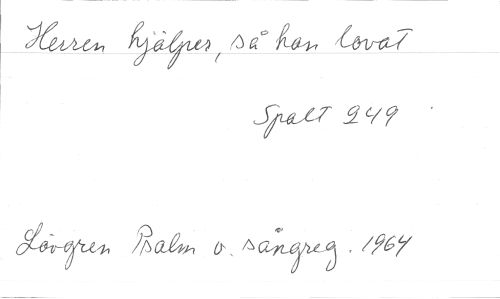 Herren hjälper, så han lovat
Spalt 249
Lövgren Psalm o. sångreg. 1964